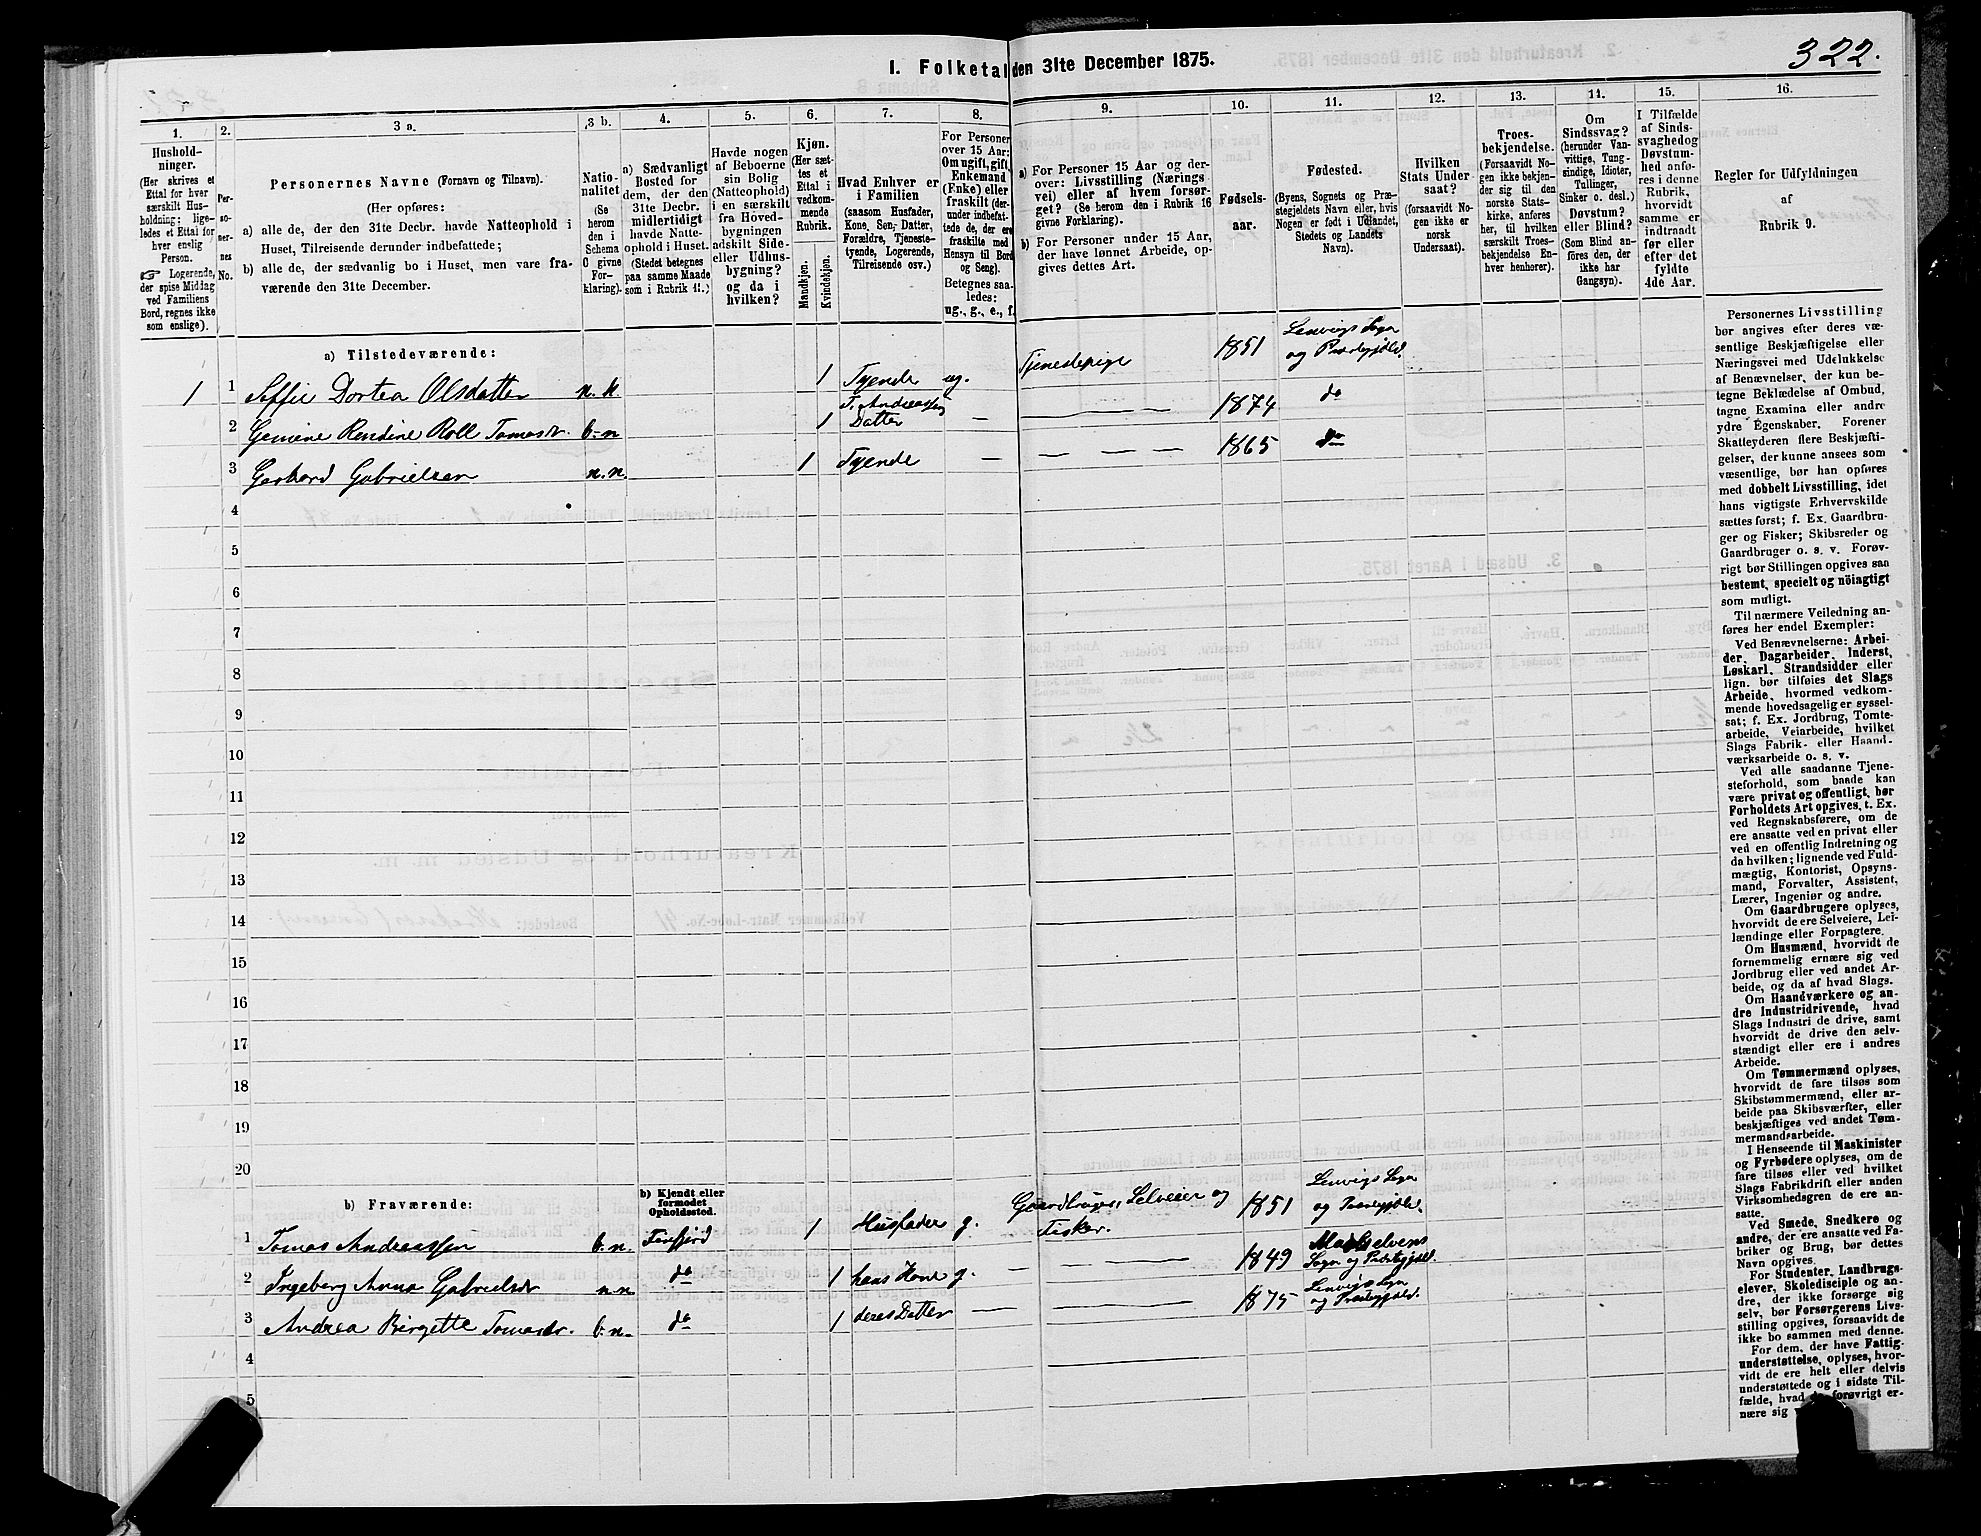 I. Folketal den 31te December 1875.
322.
1.
Hushold-
ninger.
(Her skrives et
Ettal for hver
særskilt Hus-
holdning; lige-
ledes et Ettal for
hver enslig
Person.
☞ Logerende,
der spise Middag
ved Familiens
Bord, regnes ikke
som enslige).
2.
Per-
so-
ner-
nes
No.
3 a.
Personernes Navne (Fornavn og Tilnavn).
(Her opføres:
a) alle de, der den 31te Decbr. havde Natteophold i
Huset, Tilreisende derunder indbefattede;
b) alle de, der sædvanlig bo i Huset, men vare fra-
værende den 31te December.
3 b.
Natio-
nalitet
(Se
herom
den i
Schema
O givne
For-
klaring).
4.
a) Sædvanligt
Bosted for
dem, der den
31te Decbr.
midlertidigt
havde Natte-
ophold i Huset.
(Stedet betegnes
paa samme Maade
som i Rubrik 11.)
5.
Havde nogen
af Beboerne
sin Bolig
(Natteophold)
i en særskilt
fra Hoved-
bygningen
adskilt Side-
eller Udhus-
bygning?
og da i
hvilken?
6.
Kjøn.
(Her sæt-
tes et
Ettal i
vedkom-
mende
Rubrik.
Mandkjøn.
Kvindekjøn.
7.
Hvad Enhver er
i Familien
(saasom Husfader,
Kone, Sen, Datter,
Forældre, Tjeneste-
tyende, Logerende,
Tilreisende osv.)
8.
For Personer
over 15 Aar:
Om ugift, gift,
Enkemand
(Enke) eller
fraskilt (der-
under indbefat-
tede de, der ere
fraskilte med
Hensyn til Bord
og Seng).
Betegnes saa-
ledes:
ug., g., e., f.
9.
a) For Personer 15 Aar og der-
over: Livsstilling (Nærings
vei) eller af hvem forsør-
get? (Se herom den i Rubrik 16
givne Forklaring).
b) For Personer under 15 Aar,
der have lønnet Arbeide, op-
gives dettes Art.
10.
Fødsels-
aar.
11.
Fødested.
(Byens, Sognets og Præ-
stegjeldets Navn eller, hvis
Nogen er født i Udlandet,
Stedets og Landets
Navn).
12.
Hvilken
Stats Under
saat?
(forsaavidt No-
gen ikke er
norsk
Undersaat).
13.
Troes-
bekjendelse.
(Forsaavidt No-
gen ikke bekjen-
der sig til den
norske Stats-
kirke, anføres
her, til hvilken
særskilt Troes-
bekjendelse En-
hver henhører).
14.
Om
Sindssvag?
(herunder Van-
vittige, Tung-
sindige, Idioter,
Tullinger,
Sinker o. desl.)
Døvstum?
eller Blind?
(Som Blind an-
føres den, der
ikke har
Gangsyn).
15.
I Tilfælde
af Sinds-
svaghed og
Døvstum-
hed anfø-
res i denne
Rubrik,
hvorvidt
samme er
indtraadt
før eller
efter det
fyldte
4de Aar.
16.
Regler for Udfyldningen
af
Rubrik 9.
a) Tilstedeværende:
1 1 Dortea Olsdatter n. n. 1 Tyende ug. Tjenestepige 1851 Lenvigs Sogn
og Præstegjeld.
2 Gemine Rendine Roll Tomasdr. b. n 1 T. Andreassen
Datter — 1874 do
3 Gerhard Gabrielsen n. n. 1 Tyende — 1865 do
4
5
6
7
8
9
10
11
12
13
14
15
16
17
18
19
20
b) Fraværende:
b) Kjendt eller
formodet
Opholdssted.
1 Tomas Andreassen b. n. 1 Husfader g. Gaardbruger, Selveier og
Fisker. 1851 Lenvigs Sogn
og Præstegjeld.
2 Ingeborg Anna Gabrielsdr n. n do 1 hans Kone g. — 1849 Maalselvens
Sogn og Præstegjeld.
3 Andrea Birgette Tomasdr. b. n. do 1 deres Datter — 1875 Lenvigs Sogn
og Præstegjeld.
4
5
Personernes Livsstilling
bør angives efter deres væ-
sentlige Beskjæftigelse eller
Næringsvei med Udelukkelse
af Benævnelser, der kun be-
tegne Beklædelse af Ombud,
tagne Examina eller andre
ydre Egenskaber. Forener
Skatteyderen flere Beskjæfti-
gelser, der kunne ansees som
væsentlige, bør han opføres
med dobbelt Livsstilling, idet
hans vigtigste Erhvervskilde
sættes først; f. Ex. Gaardbru-
ger og Fisker; Skibsreder og
Gaardbruger o. s. v. Forøv-
rigt bør Stillingen opgives saa
bestemt, specielt og nöiagtigt
som muligt.
Til nærmere Veiledning an-
føres her endel Exempler:
Ved Benævnelserne: Arbei-
der, Dagarbeider, Inderst,
Løskarl, Strandsidder eller
lign. bør tilføies det Slags
Arbeide, hvormed vedkom-
mende hovedsagelig er syssel-
sat; f. Ex. Jordbrug, Tomte-
arbeide, Veiarbeide, hvilket
Slags Fabrik- eller Haand-
værksarbeide o. s. v.
Ved alle saadanne Tjene-
steforhold, som baade kan
være privat og offentligt, bør
Forholdets Art opgives, t. Ex.
ved Regnskabsførere, om de
ere ansatte ved en privat eller
ved en offentlig Indretning og
da hvilken; lignende ved Fuld-
mægtig, Kontorist, Opsyns-
mand, Forvalter, Assistent,
Lærer, Ingeniør og andre.
Om Gaardbrugere oplyses,
hvorvidt de ere Selveiere, Lei-
lændinge eller Forpagtere.
Om Husmænd, hvorvidt de
fornemmelig ernære sig ved
Jordbrug eller ved andet Ar-
beide, og da af hvad Slags.
Om Haandværkere og an-
dre Industridrivende, hvad
Slags Industri de drive, samt
hvorvidt de drive den selv-
stændigt eller ere i andres
Arbeide.
Om Tømmermænd oplyses,
hvorvidt de fare tilsøs som
Skibstømmermænd, eller ar-
beide paa Skibsværfter, eller
beskjæftiges ved andet Tøm-
mermandsarbeide.
I Henseende til Maskinister
og Fyrbødere oplyses, om de
fare tilsøs eller ved hvilket
Slags Fabrikdrift eller anden
Virksomhedsgren de ere an-
satte.
Ved Smede, Snedkere og
andre, der ere ansatte ved Fa-
briker og Brug, bør dettes
Navn opgives.
For Studenter, Landbrugs-
elever, Skoledisciple og an-
dre, der ikke forsørge sig
selv, bør Forsørgerens Livs-
stilling opgives, forsaavidt de
ikke bo sammen med denne.
For dem, der have Fattig-
understøttelse, oplyses, hvor-
vidt de ere helt eller delvis
understøttede og i sidste Til-
fælde, hvad de forøvrigt er-
nære sig